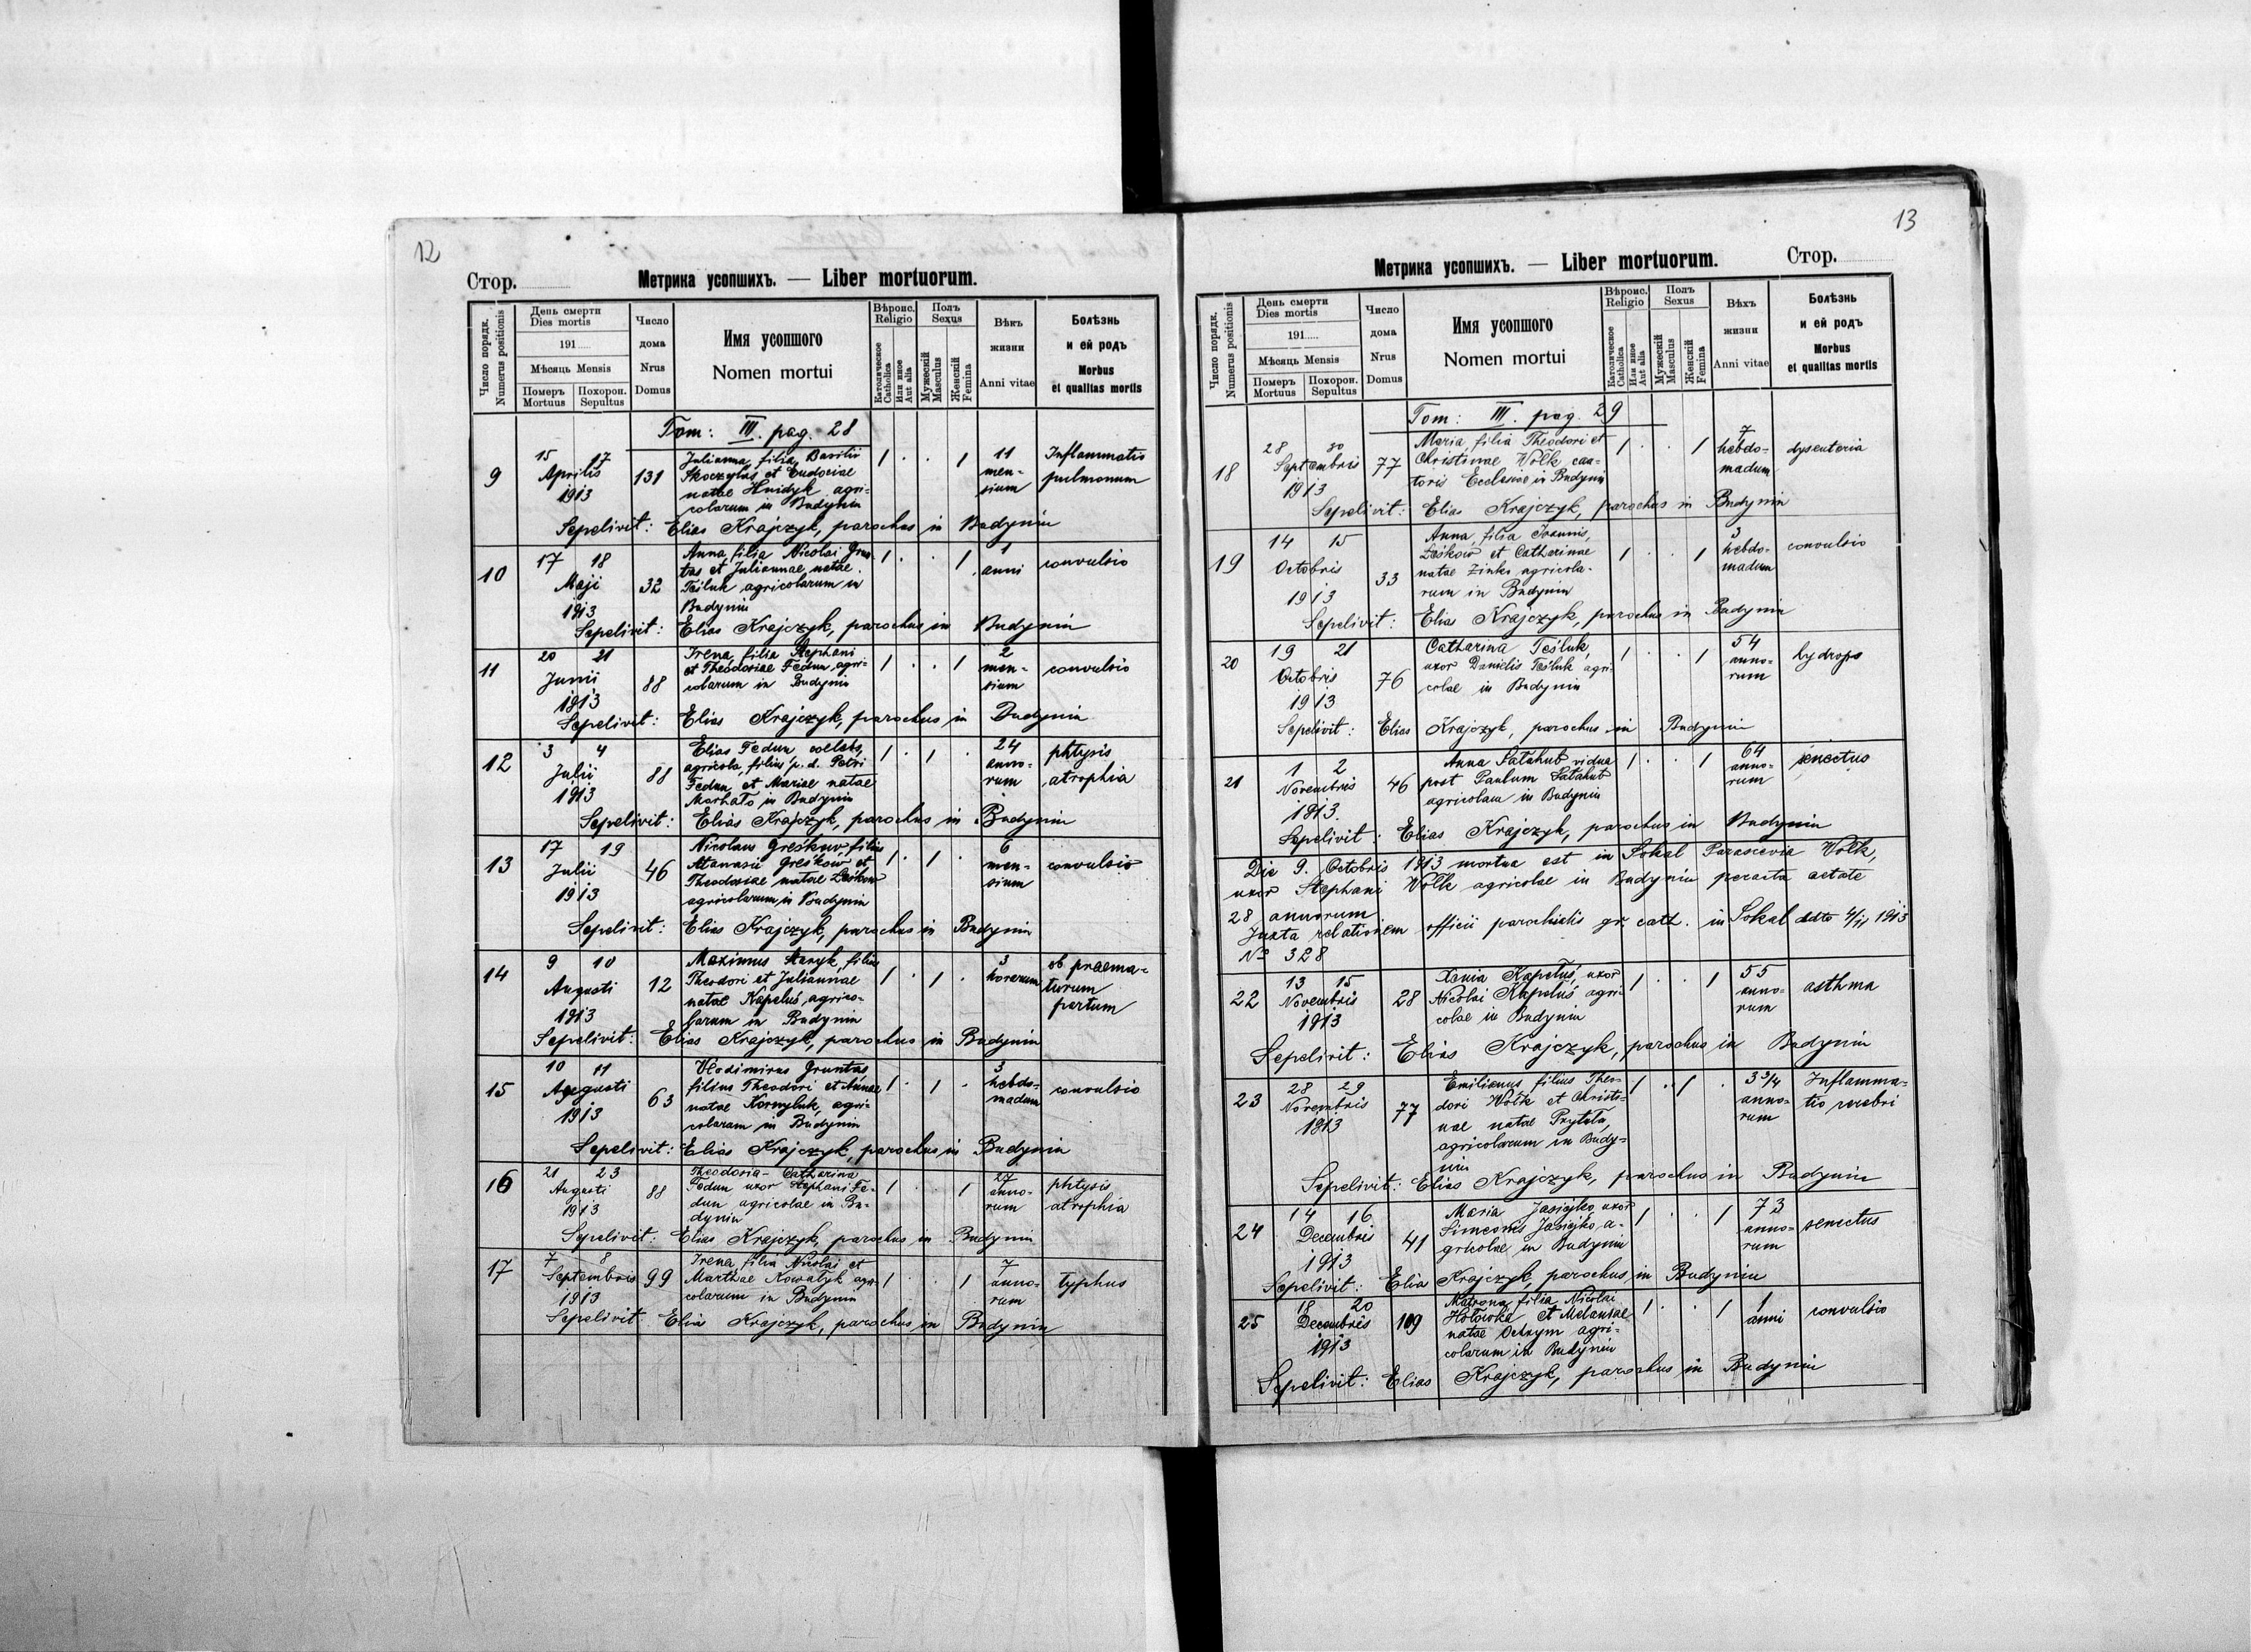 12
Стор.
Метрика усопшихъ. — Liber mortuorum.
Число порядк.
Numerus positionis
День смерти
Dies mortis
191
Мѣсяць Mensis
Померъ
Mortuus
Похорон.
Sepultus
Число
дома
Nrus
Domus
Имя усопшого
Nomen mortui
Вѣроис.
Religio
Католическое
Catholica
Или иное
Aut alia
Полъ
Sexus
Мужескій
Masculus
Женскій
Femina
Вѣкъ
жизни
Anni vitae
Болѣзнь
и ей родъ
Morbus
et qualitas mortis
Tom: III. pag. 28
9
15 17
Aprilis
1913
131
Julianna, filia Basilii
Skoczylas et Eudociae
natae Hnidyk agri-
colarum in Budynin
1 . . 1
11
men-
sium
Inflammatio
pulmonum
Sepelivit: Elias Krajczyk, parochus in Budynin
10
17 18
Maji
1913
32
Anna, filia Nicolai Grun-
tas et Juliannae natae
Teśluk agricolarum in
Budynin
1 . . 1
1
anni
convulsio
Sepelivit: Elias Krajczyk, parochus in Budynin
11
20 21
Junii
1913
88
Irena, filia Stephani
et Theodosiae Fedun, agri-
colarum in Budynin
1 . . 1
2
men-
sium
convulsio
Sepelivit: Elias Krajczyk, parochus in Budynin
12
3 4
Julii
1913
88
Elias Fedun, coelebs,
agricola, filius p. d. Petri
Fedun et Mariae natae
Marhało in Budynin
1 . 1 .
24
anno-
rum
phtysis
atrophia
Sepelivit: Elias Krajczyk, parochus in Budynin
13
17 19
Julii
1913
46
Nicolaus Greśkow, filius
Atanasii Greśkow et
Theodosiae natae Leśkow
agricolarum in Budynin
1 . 1 .
6
men-
sium
convulsio
Sepelivit: Elias Krajczyk, parochus in Budynin
14
9 10
Augusti
1913
12
Maximus Staryk, filius
Theodori et Juliannae
natae Kapeluś, agrico-
larum in Budynin
1 . 1 .
3
horarum
ob praema-
turum
partum
Sepelivit: Elias Krajczyk, parochus in Budynin
15
10 11
Augusti
1913
63
Vlodimirus Gruntas,
filius Theodori et Annae
natae Kornyluk, agri-
colarum in Budynin
1 . 1 .
3
hebdo-
madum
convulsio
Sepelivit: Elias Krajczyk, parochus in Budynin
16
21 23
Augusti
1913
88
Theodosia-Catharina
Fedun uxor Stephani Fe-
dun agricolae in Bu-
dynin
1 . 1
27
anno-
rum
phtysis
atrophia
Sepelivit: Elias Krajczyk, parochus in Budynin
17
7 8
Septembris
1913
99
Irena, filia Nicolai et
Marthae Kowalyk agri-
colarum in Budynin
1 . 1
7
anno-
rum
typhus
Sepelivit Elias Krajczyk, parochus in Budynin
13
Метрика усопшихъ. — Liber mortuorum.
Стор.
Число порядк.
Numerus positionis
День смерти
Dies mortis
191
Мѣсяць Mensis
Померъ
Mortuus
Похорон.
Sepultus
Число
дома
Nrus
Domus
Имя усопшого
Nomen mortui
Вѣроис.
Religio
Католическое
Catholica
Или иное
Aut alia
Полъ
Sexus
Мужескій
Masculus
Женскій
Femina
Вѣхъ
жизни
Anni vitae
Болѣзнь
и ей родъ
Morbus
et qualitas mortis
Tom: III. pag. 29
18
28 30
Septembris
1913
77
Maria, filia Theodori et
Christinae Wolk can-
toris Ecclesiae in Budynin
1 . . 1
7
hebdo-
madum
dysenteria
Sepelivit: Elias Krajczyk, parochus in Budynin
19
14 15
Octobris
1913
33
Anna, filia Joannis,
Leśkow et Catharinae
natae Zinko agricola-
rum in Budynin
1 . . 1
3
hebdo-
madum
convulsio
Sepelivit: Elias Krajczyk, parochus in Budynin
20
19 21
Octobris
1913
76
Catharina Teśluk,
uxor Danielis Teśluk agri-
colae in Budynin
1 . . 1
54
anno-
rum
hydrops
Sepelivit: Elias Krajczyk, parochus in Budynin
21
1 2
Novembris
1913.
46
Anna Łatahub vidua
post Paulum Łatahub
agricolam in Budynin
1 . . 1
64
anno-
rum
senectus
Sepelivit: Elias Krajczyk, parochus in Budynin
Die 9. Octobris 1913 mortua est in Sokal Parascevia Wolk,
uxor Stephani Wolk agricolae in Budynin peracta aetate
28 annorum
Juxta relationem officii parochialis gr. cath. in Sokal ddto 4/11 1913
No 328
22
13 15
Novembris
1913
28
Xenia Kapeluś, uxor
Nicolai Kapeluś agri-
colae in Budynin
1 . . 1
55
anno-
rum
asthma
Sepelivit: Elias Krajczyk, parochus in Budynin
23
28 29
Novembris
1913
77
Emilianus filius Theo-
dori Wolk et Christi-
nae natae Prytuła,
agricolarum in Budy-
nin
1 . 1 .
3 3/4
anno-
rum
Inflamma-
tio cerebri
Sepelivit: Elias Krajczyk, parochus in Budynin
24
14 16
Decembris
1913
41
Maria Jasiejko, uxor
Simeonis Jasiejko, a-
gricolae in Budynin
1 . . 1
73
anno-
rum
senectus
Sepelivit: Elia Krajczyk, parochus in Budynin
25
18 20
Decembris
1913
109
Matrona, filia Nicolai
Hołowka et Melaniae
natae Ochrym agri-
colarum in Budynin
1 . . 1
1
anni
convulsio
Sepelivit: Elias Krajczyk, parochus in Budynin